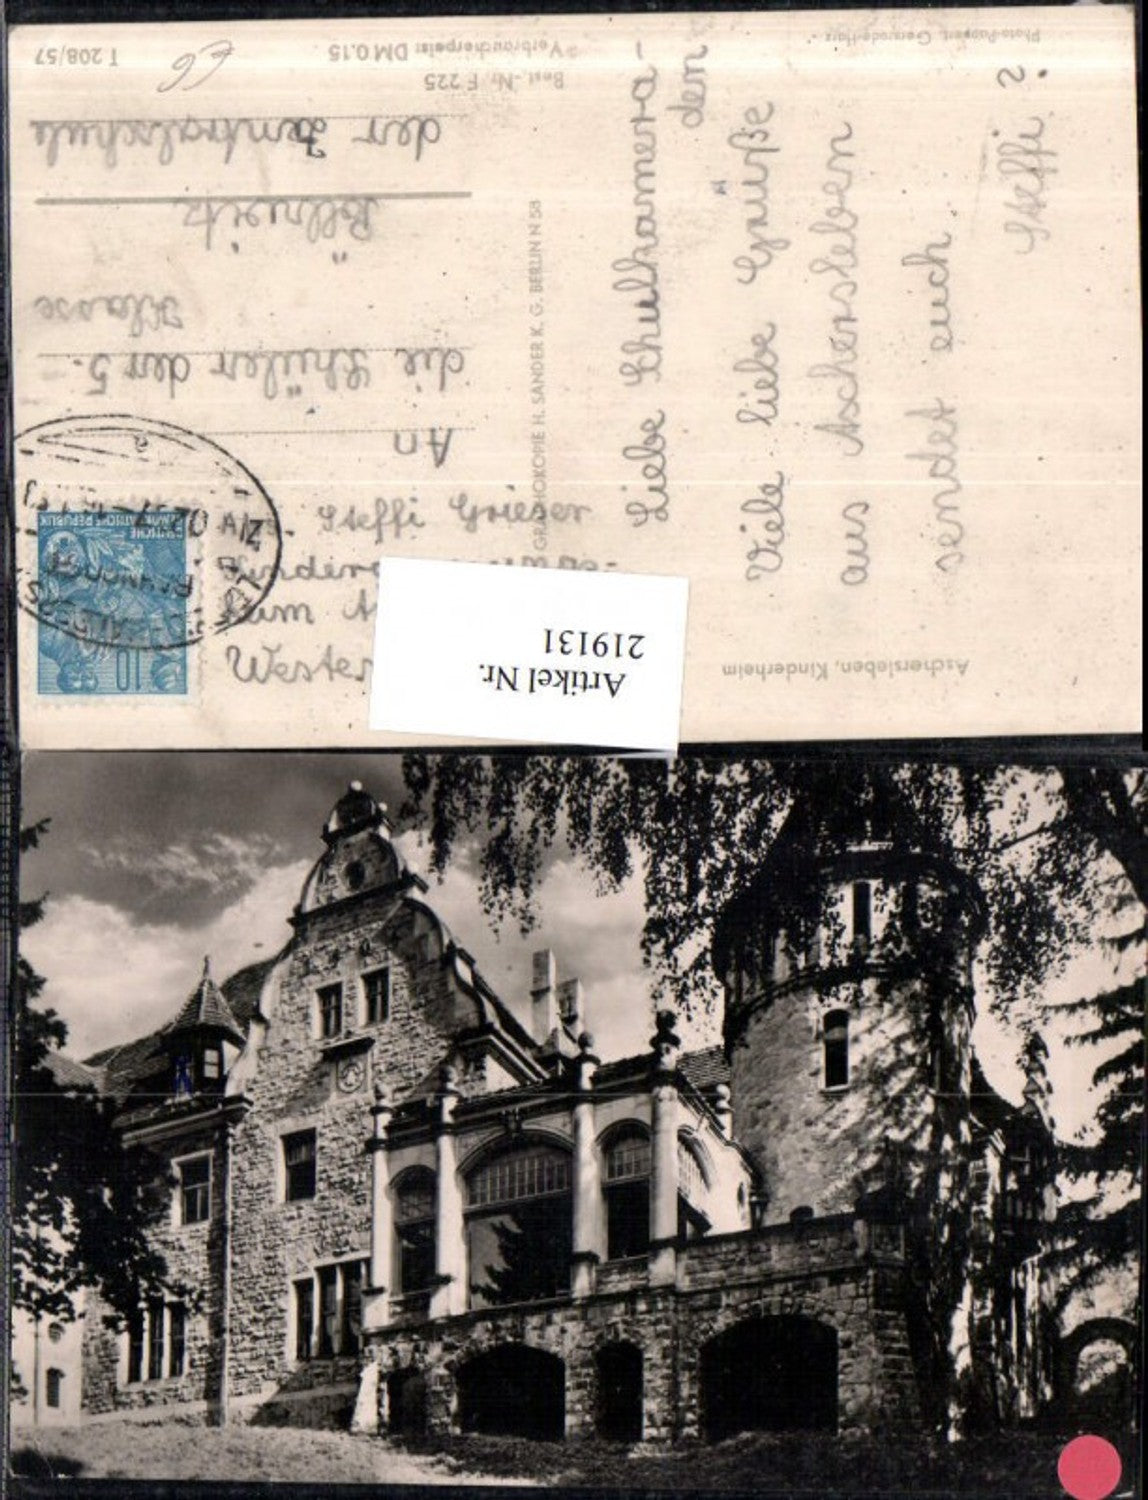 Aschersleben, Kinderheim
Liebe Schulkamera-
den
Viele liebe Grüße
aus Aschersleben
sendet euch
Steffi
Photo-Puppert, Gernrode-Harz
GRAPHOKOPIE H. SANDER K. G. BERLIN N 58
Steffi Grieser
An
die Schüler der 5.
Klasse
der Zentralschule
Best.-Nr. F 225
Verbraucherpreis: DM 0.15
T 208/57
DEUTSCHE
DEMOKRATISCHE REPUBLIK
10
Artikel Nr.
219131